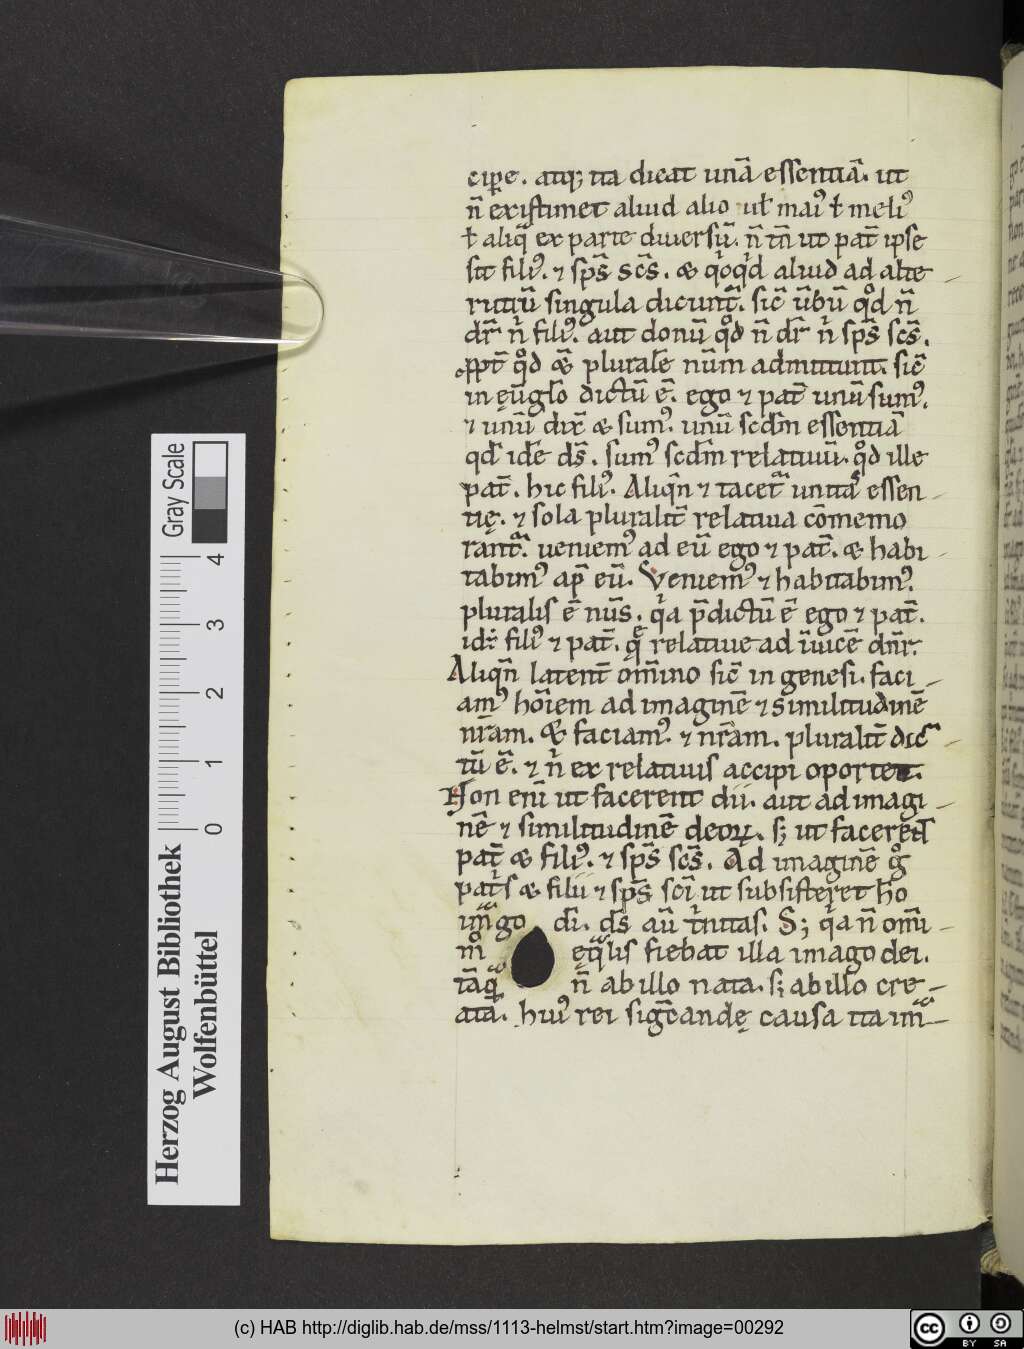 cip̱e. atq; ita dicat unā essentiā. ut
n̄ existimet aliud alio ul̄ mai⁹ ł meli⁹
ł aliq̄ ex parte diuersū. n̄ tn̄ ut pat̄ ipse
sit fili⁹. ⁊ sp̄s sc̄s. & qͦqͥd aliud ad alte
rutrū singula dicunt᷑. sic̄ ūbū qͦd n̄
dr̄ nͥ fili⁹. aut donū qͦd n̄ dr̄ nͥ sp̄s sc̄s.
ꝓpt̄ qͦd &̄ plurale nūm admittunt. sic̄
in eūgl̄o dictū ē. ego ⁊ pat̄ unū sum⁹.
⁊ unū dix̄ & sum⁹. unū scd̄m essentiā
qd̄ idē ds̄. sum⁹ scd̄m relatiuū. qͦd ille
pat̄. hic fili⁹. Aliqn̄ ⁊ tacet᷑ unitas essen
tię. ⁊ sola pluralit̄ relatiua cōmemo
rant᷑. ueniem⁹ ad eū ego ⁊ pat̄. & habi
tabim⁹ ap̄ eū. Veniem⁹ ⁊ habitabim⁹.
pluralis ē nūs. qͥa p̄dictū ē ego ⁊ pat̄.
id᷑ fili⁹ ⁊ pat̄. q̄ relatiue ad īuicē dn̄r.
Aliqn̄ latent̄ om̄ino sic̄ in genesi. faci
am⁹ hōiem ad imaginē ⁊ similitudinē
nr̄am. & faciam⁹. ⁊ nr̄am. pluralit̄ dic
tū ē. ⁊ nͥ ex relatiuis accipi oportet.
Non enī ut facerent dii. aut ad imagi
nē ⁊ similitudinē deoꝝ. s; ut facerent
pat̄ & fili⁹. ⁊ sp̄s sc̄s. Ad imaginē gͦ
patͥs & filii ⁊ sp̄s sc̄i ut subsisteret hō
imago dī. ds̄ aū tͥnitas. S; qͥa n̄ om̄i
mͦ eq̄lis fiebat illa imago dei.
tāq̄ n̄ ab illo nata. s; ab illo cre
ata. hui⁹ rei sigc̄andę causa ita im
Gray Scale
0 1 2 3 4
Herzog August Bibliothek
Wolfenbüttel
(c) HAB http://diglib.hab.de/mss/1113-helmst/start.htm?image=00292
cc BY SA